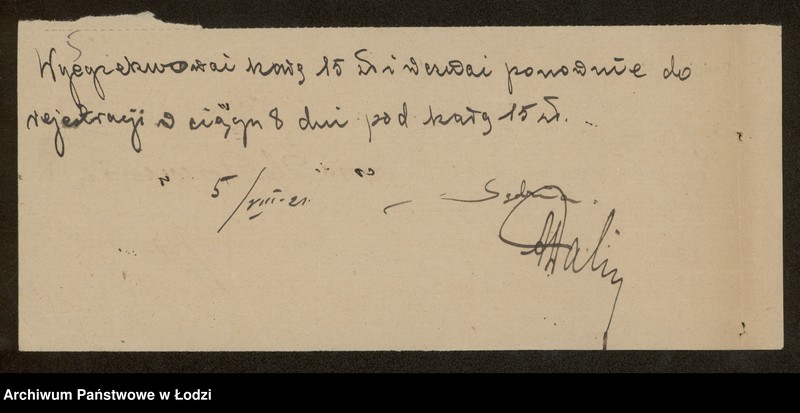 Wyegzekwować karę 15 zł i wezwać ponownie do
rejestracji w ciągu 8 dni pod karą 15 zł.
5/VIII-21. Sędzia.
Archiwum Państwowe w Łodzi